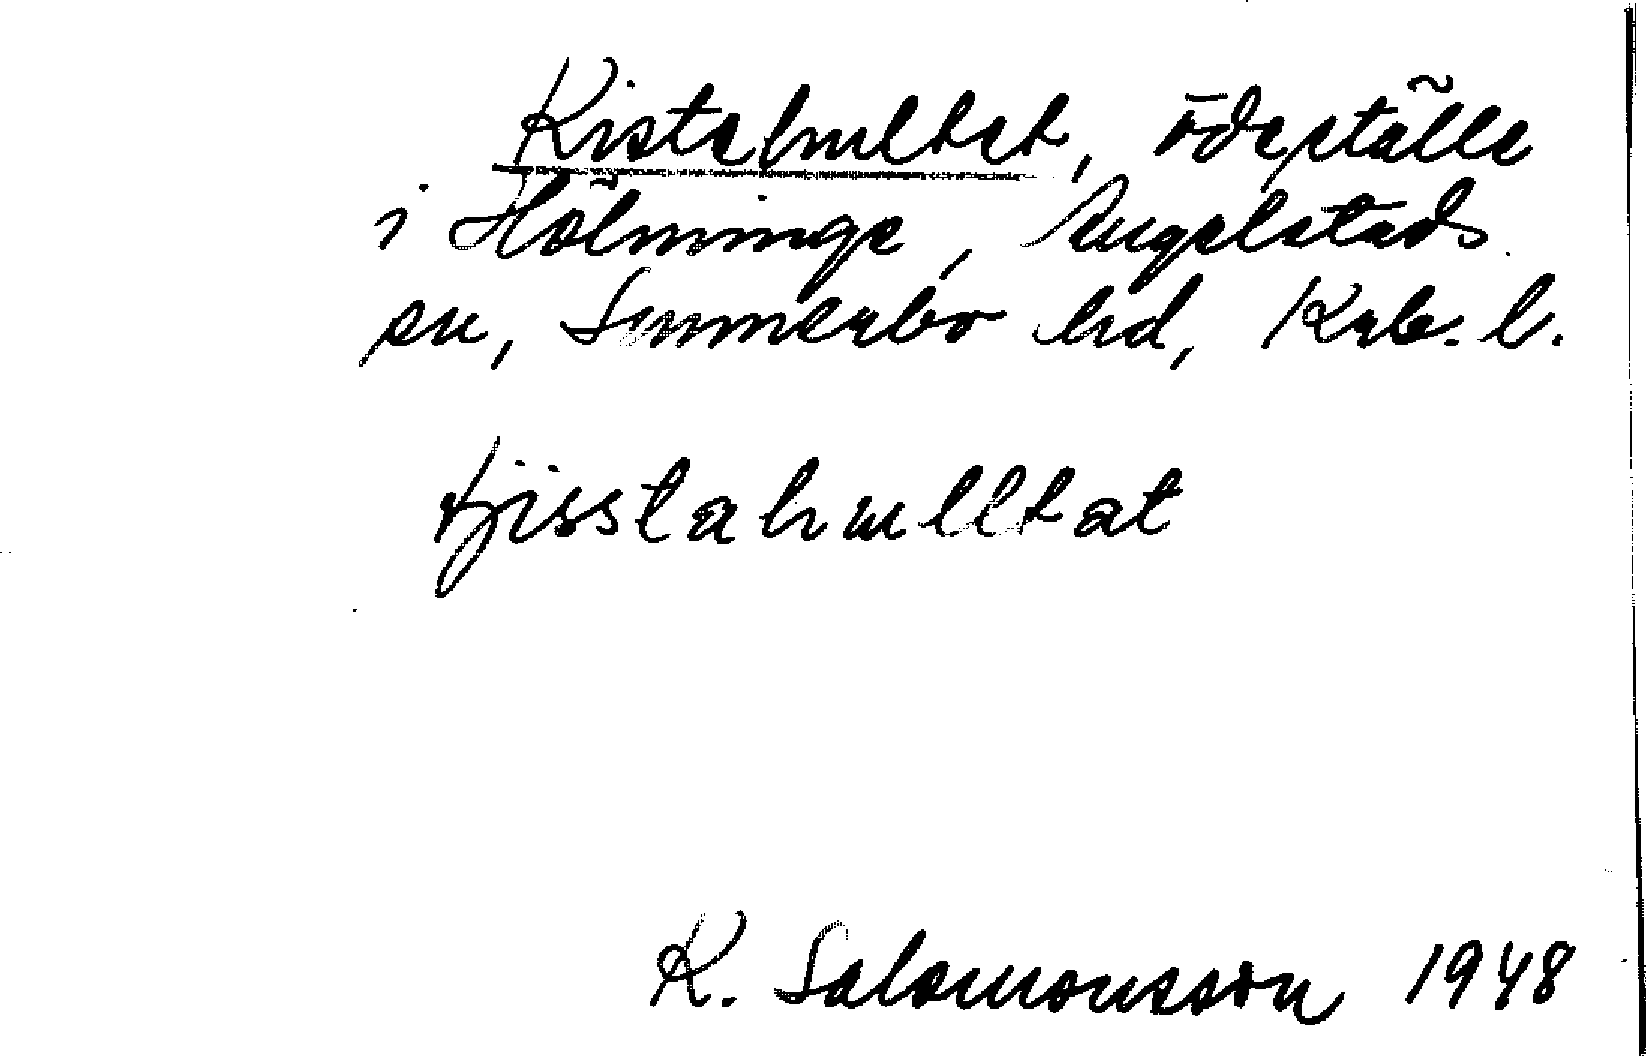 Kistahultet, ödeställe
i Hölminge, Angelstads
sn, Sunnerbo hd, Krb. l.
tjisstahulltat
K. Salomonsson 1948